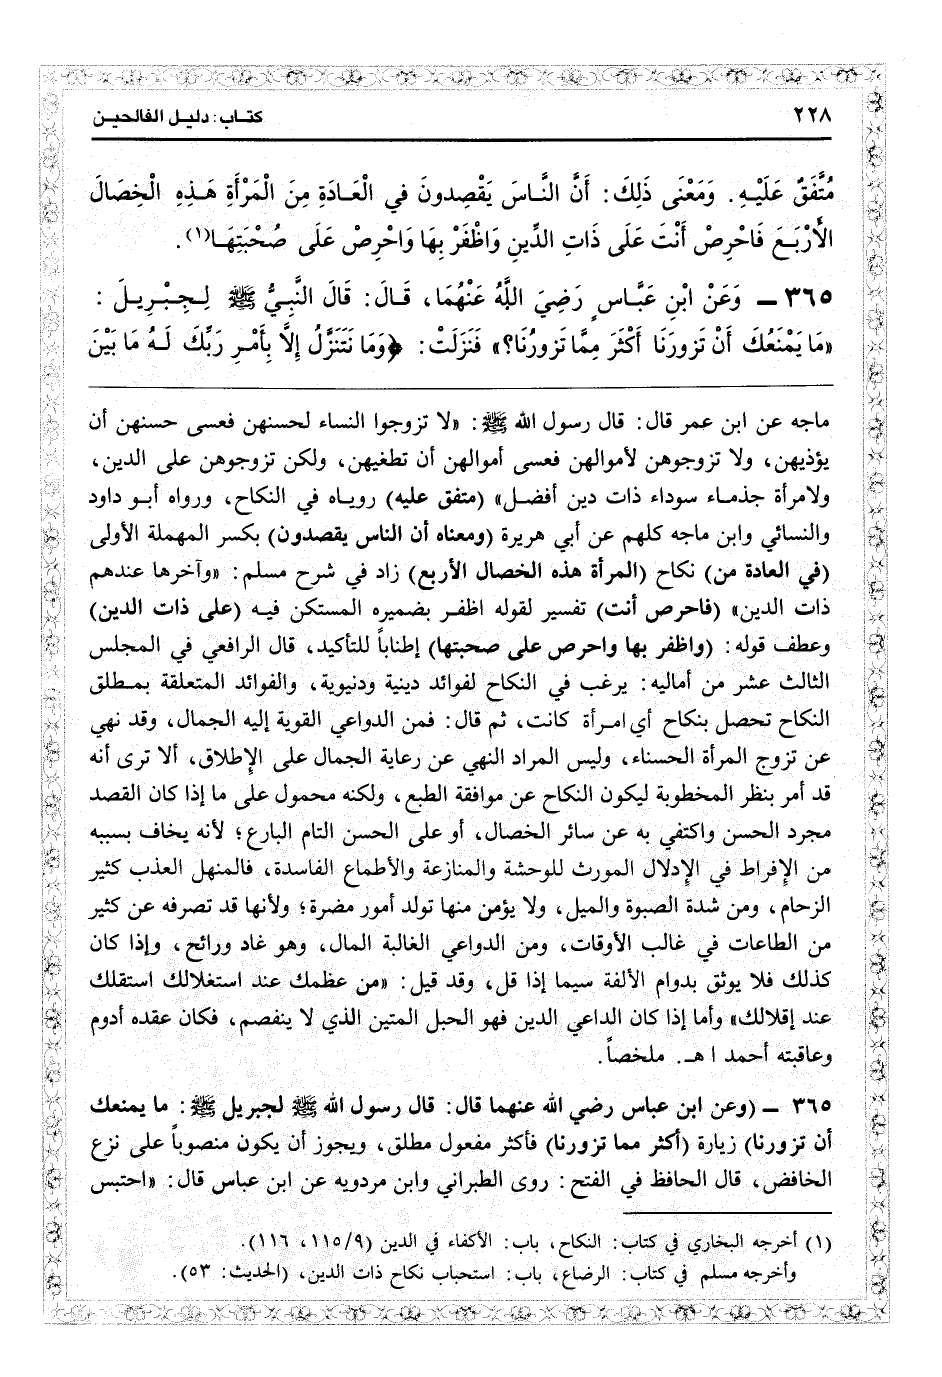 ٢٢٨ كتاب: دليل الفالحين
مُتَّفَقٌ عَلَيْهِ. وَمَعْنَى ذَلِكَ: أَنَّ النَّاسَ يَقْصِدونَ في الْعَادَةِ مِنَ الْمَرْأَةِ هَذِهِ الْخِصَالَ
الأَرْبَعَ فَاحْرِصْ أَنْتَ عَلَى ذَاتِ الدِّينِ وَاظْفَرْ بِهَا وَاحْرِصْ عَلَى صُحْبَتِهَا(١).
٣٦٥ – وَعَنْ ابْنِ عَبَّاسٍ رَضِيَ اللَّهُ عَنْهُمَا، قَالَ: قَالَ النَّبِيُّ ﷺ لِجِبْرِيلَ:
«مَا يَمْنَعُكَ أَنْ تَزورَنَا أَكْثَرَ مِمَّا تَزورُنَا؟» فَنَزَلَتْ: ﴿وَمَا نَتَنَزَّلُ إِلاَّ بِأَمْرِ رَبِّكَ لَهُ مَا بَيْنَ
ماجه عن ابن عمر قال: قال رسول الله ﷺ: «لا تزوجوا النساء لحسنهن فعسى حسنهن أن
يؤذيهن، ولا تزوجوهن لأموالهن فعسى أموالهن أن تطغيهن، ولكن تزوجوهن على الدين،
ولامرأة جذماء سوداء ذات دين أفضل» (متفق عليه) روياه في النكاح، ورواه أبو داود
والنسائي وابن ماجه كلهم عن أبي هريرة (ومعناه أن الناس يقصدون) بكسر المهملة الأولى
(في العادة من) نكاح (المرأة هذه الخصال الأربع) زاد في شرح مسلم: «وآخرها عندهم
ذات الدين» (فاحرص أنت) تفسير لقوله اظفر بضميره المستكن فيه (على ذات الدين)
وعطف قوله: (واظفر بها واحرص على صحبتها) إطناباً للتأكيد، قال الرافعي في المجلس
الثالث عشر من أماليه: يرغب في النكاح لفوائد دينية ودنيوية، والفوائد المتعلقة بمطلق
النكاح تحصل بنكاح أي امرأة كانت، ثم قال: فمن الدواعي القوية إليه الجمال، وقد نهي
عن تزوج المرأة الحسناء، وليس المراد النهي عن رعاية الجمال على الإطلاق، ألا ترى أنه
قد أمر بنظر المخطوبة ليكون النكاح عن موافقة الطبع، ولكنه محمول على ما إذا كان القصد
مجرد الحسن واكتفي به عن سائر الخصال، أو على الحسن التام البارع؛ لأنه يخاف بسببه
من الإفراط في الإدلال المورث للوحشة والمنازعة والأطماع الفاسدة، فالمنهل العذب كثير
الزحام، ومن شدة الصبوة والميل، ولا يؤمن منها تولد أمور مضرة؛ ولأنها قد تصرفه عن كثير
من الطاعات في غالب الأوقات، ومن الدواعي الغالبة المال، وهو غاد ورائح، وإذا كان
كذلك فلا يوثق بدوام الألفة سيما إذا قل، وقد قيل: «من عظمك عند استغلالك استقلك
عند إقلالك» وأما إذا كان الداعي الدين فهو الحبل المتين الذي لا ينفصم، فكان عقده أدوم
وعاقبته أحمد ا هـ. ملخصاً.
٣٦٥ – (وعن ابن عباس رضي الله عنهما قال: قال رسول الله ﷺ لجبريل ﷺ: ما يمنعك
أن تزورنا) زيارة (أكثر مما تزورنا) فأكثر مفعول مطلق، ويجوز أن يكون منصوباً على نزع
الخافض، قال الحافظ في الفتح: روى الطبراني وابن مردويه عن ابن عباس قال: «احتبس
(١) أخرجه البخاري في كتاب: النكاح، باب: الأكفاء في الدين (١١٥/٩، ١١٦).
وأخرجه مسلم في كتاب: الرضاع، باب: استحباب نكاح ذات الدين، (الحديث: ٥٣).